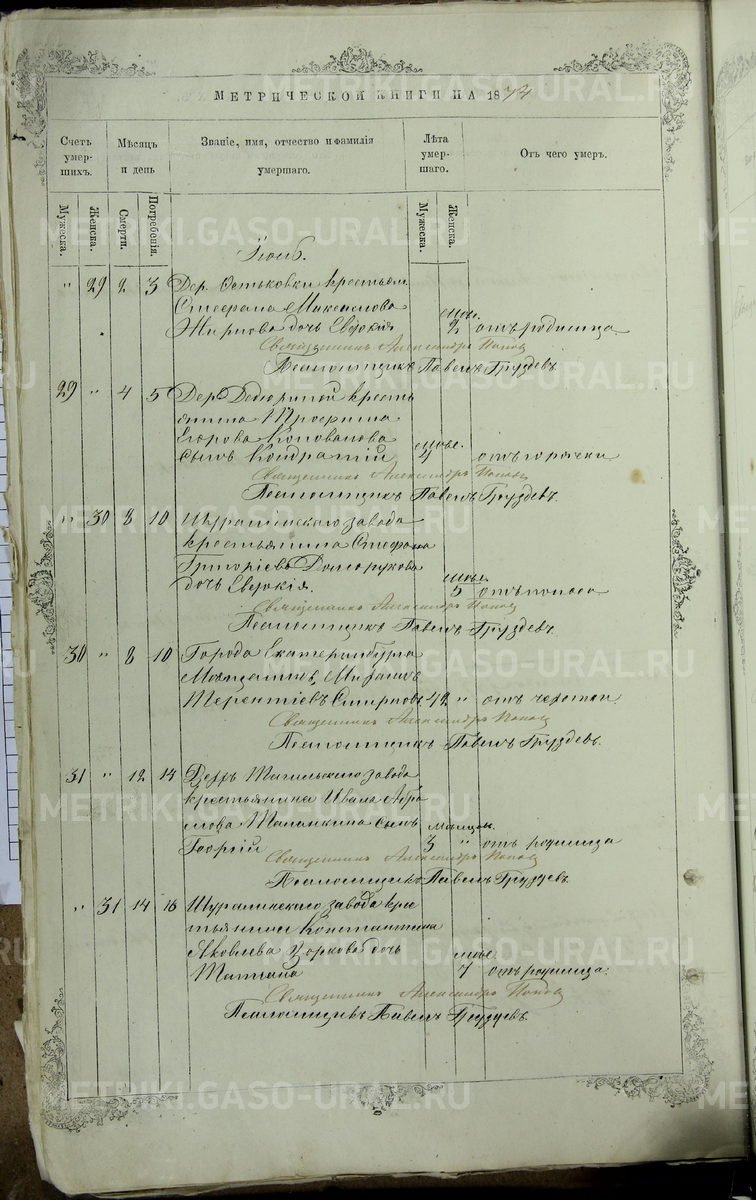 МЕТРИЧЕСКОЙ КНИГИ НА 1874
Счетъ умер- шихъ.
Мѣсяцъ и день
Званіе, имя, отчество и фамилія умершаго.
Лѣта умер- шаго.
Отъ чего умеръ.
Мужеска. Женска. Смерти. Погребенія. Мужеска. Женска.
" 29 2 3 Дер.
Стефана
Жирнова дочь Евдокія 2 отъ родимца
Священникъ Александръ Поповъ
Псаломщикъ Павелъ Груздевъ
29 " 4 5 Дер. Дедюриной кресть
янина Трофима
Егорова Коновалова
сынъ Кондратій 4 отъ горячки
Священникъ Александръ Поповъ
Псаломщикъ Павелъ Груздевъ.
" 30 8 10 Шуралинскаго завода
крестьянина Стефана
Григоріева Долгорукова
дочь Евдокія. 5 отъ поноса
Священникъ Александръ Поповъ
Псаломщикъ Павелъ Груздевъ
30 " 8 10 Города Екатеринбурга
Мѣщанинъ
Терентіевъ Смирновъ 42 " отъ чахотки
Священникъ Александръ Поповъ
Псаломщикъ Павелъ Груздевъ.
31 " 12 14 Тагильскаго завода
крестьянина Ивана
сынъ мѣсяц.
Георгій 3 " отъ родимца
Священникъ Александръ Поповъ
Псаломщикъ Павелъ Груздевъ
" 31 14 16 Шуралинскаго завода кре
стьянина Константина
Яковлева дочь
Татіана 7 отъ родимца.
Священникъ Александръ Поповъ
Псаломщикъ Павелъ Груздевъ.
METRIKI.GASO-URAL.RU